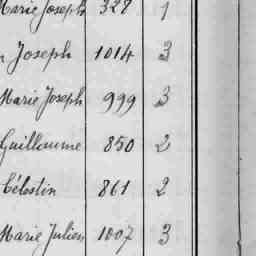 Marie Joseph 328 1
Joseph 1014 3
Marie Joseph 999 3
Guillaume 850 2
Célestin 861 2
Marie Julien 1007 3